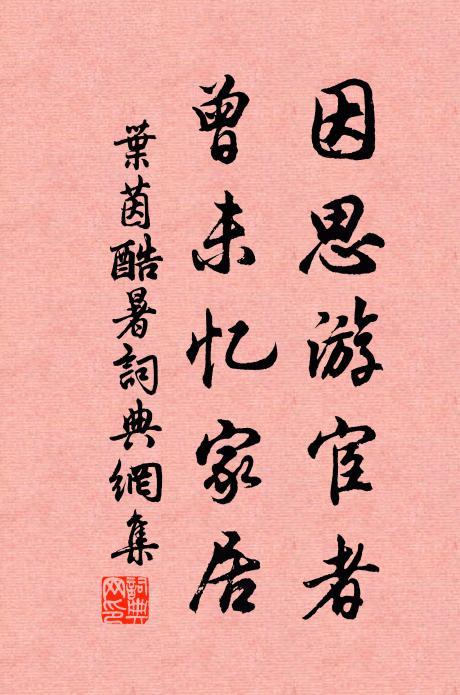 因思游宦者
曾未忆家居
葉茵酷暑詞典網集
詞典網印